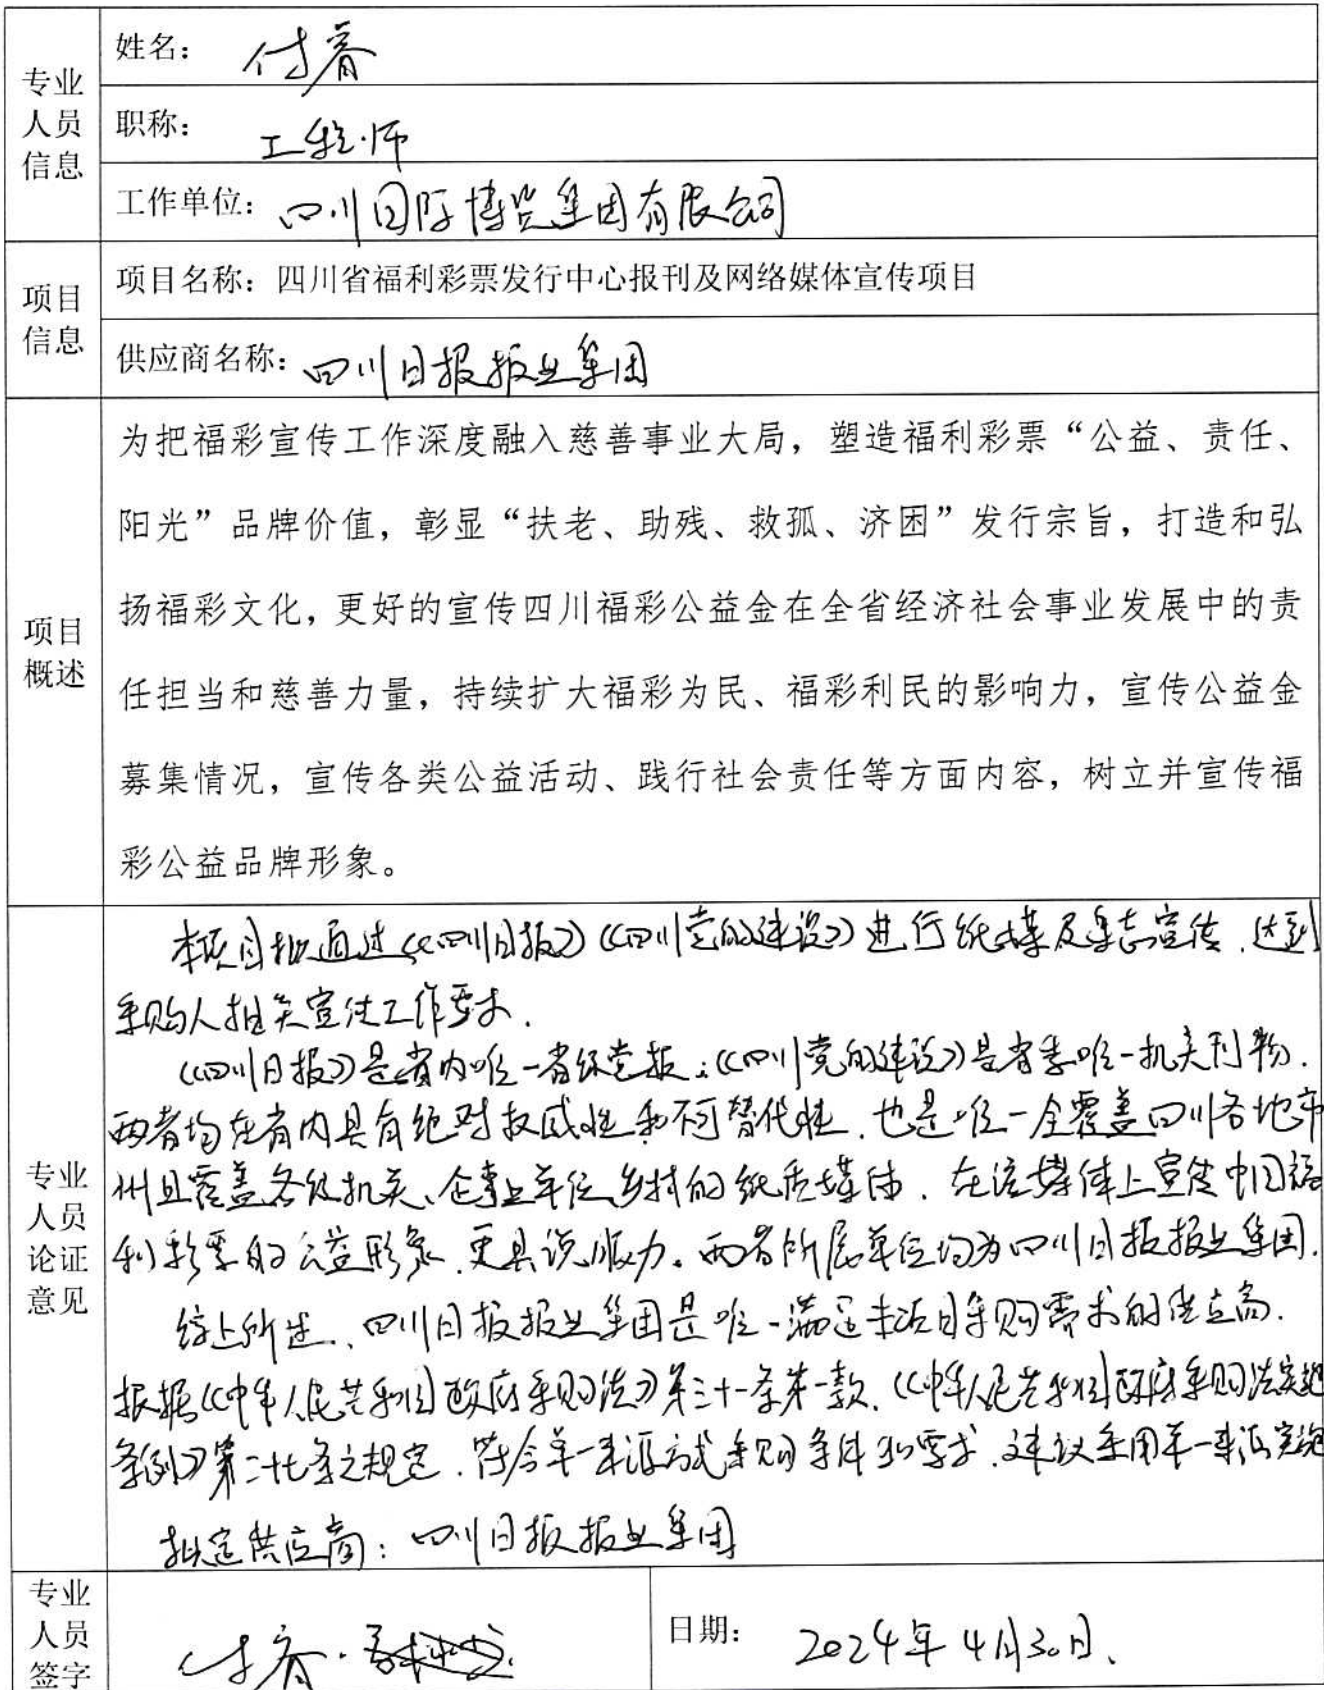 专业
人员
信息
姓名：付睿
职称：工程师
工作单位：四川国际博览集团有限公司
项目
信息
项目名称：四川省福利彩票发行中心报刊及网络媒体宣传项目
供应商名称：四川日报报业集团
项目
概述
为把福彩宣传工作深度融入慈善事业大局，塑造福利彩票“公益、责任、
阳光”品牌价值，彰显“扶老、助残、救孤、济困”发行宗旨，打造和弘
扬福彩文化，更好的宣传四川福彩公益金在全省经济社会事业发展中的责
任担当和慈善力量，持续扩大福彩为民、福彩利民的影响力，宣传公益金
募集情况，宣传各类公益活动、践行社会责任等方面内容，树立并宣传福
彩公益品牌形象。
专业
人员
论证
意见
本项目拟通过《四川日报》《四川党的建设》进行纸媒及杂志宣传，达到
采购人相关宣传工作要求.
《四川日报》是省内唯一省级党报；《四川党的建设》是省委唯一机关刊物.
两者均在省内具有绝对权威性和不可替代性，也是唯一全覆盖四川各地市
州且覆盖各级机关、企事业单位、乡村的纸质媒体. 在该媒体上宣传中国福
利彩票的公益形象，更具说服力。两者所属单位均为四川日报报业集团.
综上所述、四川日报报业集团是唯一满足本项目采购需求的供应商.
根据《中华人民共和国政府采购法》第三十一条第一款，《中华人民共和国政府采购法实施
条例》第二十七条之规定，符合单一来源方式采购条件和要求，建议采用单一来源实施
拟定供应商：四川日报报业集团
专业
人员
签字
付睿.
日期：2024年4月30日.